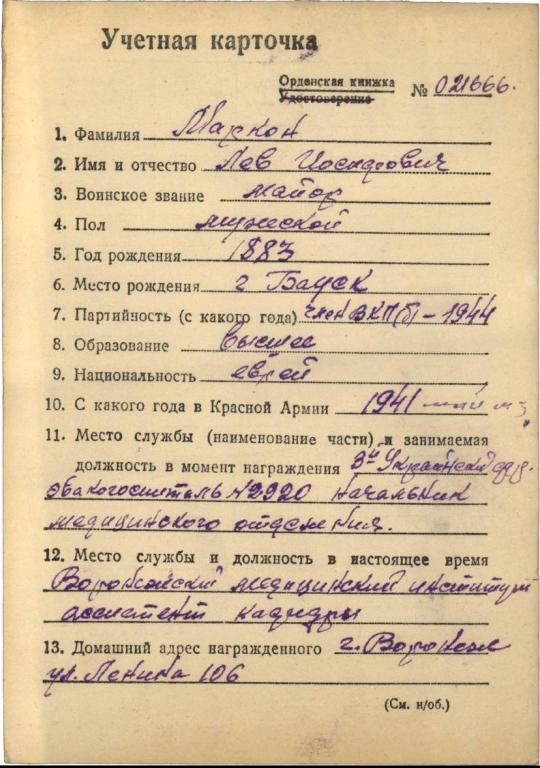 Учетная карточка
Орденская книжка
Удостоверение
№ 021666.
1. Фамилия Маркон
2. Имя и отчество Лев Иосифович
3. Воинское звание майор
4. Пол мужской
5. Год рождения 1883
6. Место рождения г Бауск
7. Партийность (с какого года) член ВКП(б) – 1944
8. Образование высшее
9. Национальность еврей
10. С какого года в Красной Армии 1941
11. Место службы (наименование части) и занимаемая
должность в момент награждения 3й Украинский
эвакогоспиталь №2920 начальник
медицинского отделения.
12. Место службы и должность в настоящее время
Воронежский медицинский институт
ассистент кафедры
13. Домашний адрес награжденного г. Воронеж
ул. Ленина 106
(См. н/об.)